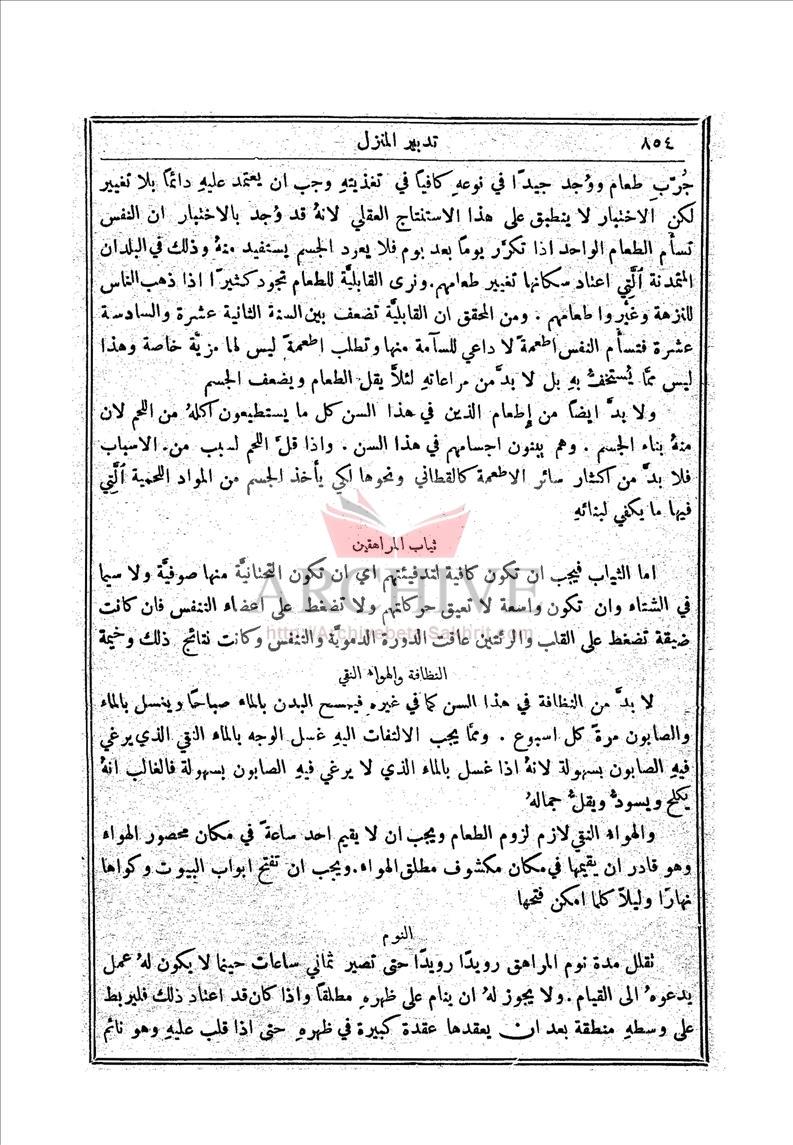 ٨٥٤ تدبير المنزل
جُرّب طعام ووُجد جيدًا في نوعهِ كافيًا في تغذيتهِ وجب ان يعتمد عليهِ دائمًا بلا تغيير
لكن الاختبار لا ينطبق على هذا الاستنتاج العقلي لانهُ قد وُجد بالاختبار ان النفس
تسأم الطعام الواحد اذا تكرَّر يومًا بعد يوم فلا يعود الجسم يستفيد منهُ وذلك في البلدان
المتمدنة الَّتي اعتاد سكانها تغيير طعامهم. ونرى القابليَّة للطعام تجود كثيرًا اذا ذهب الناس
للنزهة وغيَّروا طعامهم . ومن المحقق ان القابليَّة تضعف بين السنة الثانية عشرة والسادسة
عشرة فتسأم النفس اطعمةً لا داعي للسآمة منها وتطلب اطعمةً ليس لها مزيَّة خاصة وهذا
ليس ممَّا يُستخفُّ بهِ بل لا بدَّ من مراعاتهِ لئلاَّ يقل الطعام ويضعف الجسم
ولا بدَّ ايضًا من إطعام الذين في هذا السن كل ما يستطيعون اكلهُ من اللحم لان
منهُ بناء الجسم . وهم يبنون اجسامهم في هذا السن . واذا قلَّ اللحم لسبب من الاسباب
فلا بدَّ من اكثار سائر الاطعمة كالقطاني ونحوها لكي يأخذ الجسم من المواد اللحمية الَّتي
فيها ما يكفي لبنائهِ
ثياب المراهقين
اما الثياب فيجب ان تكون كافية لتدفيئتهم اي ان تكون التحتانيَّة منها صوفيَّة ولا سيما
في الشتاء وان تكون واسعة لا تعيق حركاتهم ولا تضغط على اعضاء التنفس فان كانت
ضيقة تضغط على القلب والرئتين عاقت الدورة الدمويَّة والتنفس وكانت نتائج ذلك وخيمة
ARCHIVE
http://Archivebeta.Sakhrit.com
النظافة والهواء النقي
لا بدَّ من النظافة في هذا السن كما في غيرهِ فيمسح البدن بالماء صباحًا ويغسل بالماء
والصابون مرة كل اسبوع . وممَّا يجب الالتفات اليهِ غسل الوجه بالماء النقي الذي يرغي
فيهِ الصابون بسهولة لانهُ اذا غسل بالماء الذي لا يرغي فيهِ الصابون بسهولة فالغالب انهُ
يكلح ويسودُّ ويقلُّ جمالهُ
والهواء النقي لازم لزوم الطعام ويجب ان لا يقيم احد ساعةً في مكان محصور الهواء
وهو قادر ان يقيمها في مكان مكشوف مطلق الهواء. ويجب ان تفتح ابواب البيوت وكواها
نهارًا وليلاً كلما امكن فتحها
النوم
تقلل مدة نوم المراهق رويدًا رويدًا حتى تصير ثماني ساعات حينما لا يكون لهُ عمل
يدعوهُ الى القيام . ولا يجوز لهُ ان ينام على ظهرهِ مطلقًا واذا كان قد اعتاد ذلك فليربط
على وسطهِ منطقة بعد ان يعقدها عقدة كبيرة في ظهرهِ حتى اذا قلب عليهِ وهو نائم